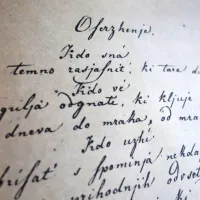 Oserzhenje.
Kdo sná
temno rasjasnit', ki tare d
Kdo vé
gulja odgnati, ki kljuje
dneva do mraka, od mra
Kdo uzhi
brisat' s spominja nekda
prihodnjih odvset
ki